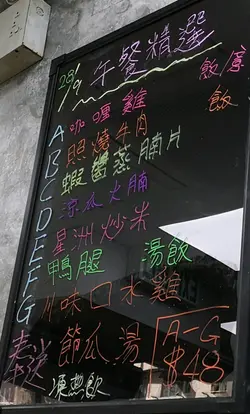 28/9 午餐精選
飲 飯
A 咖喱雞
B 照燒牛肉
C 蝦醬蒸腩片
D 涼瓜火腩
E 星洲炒米
F 鴨腿湯飯
G 小味口水雞
節瓜湯
A-G $48
凍熱飲